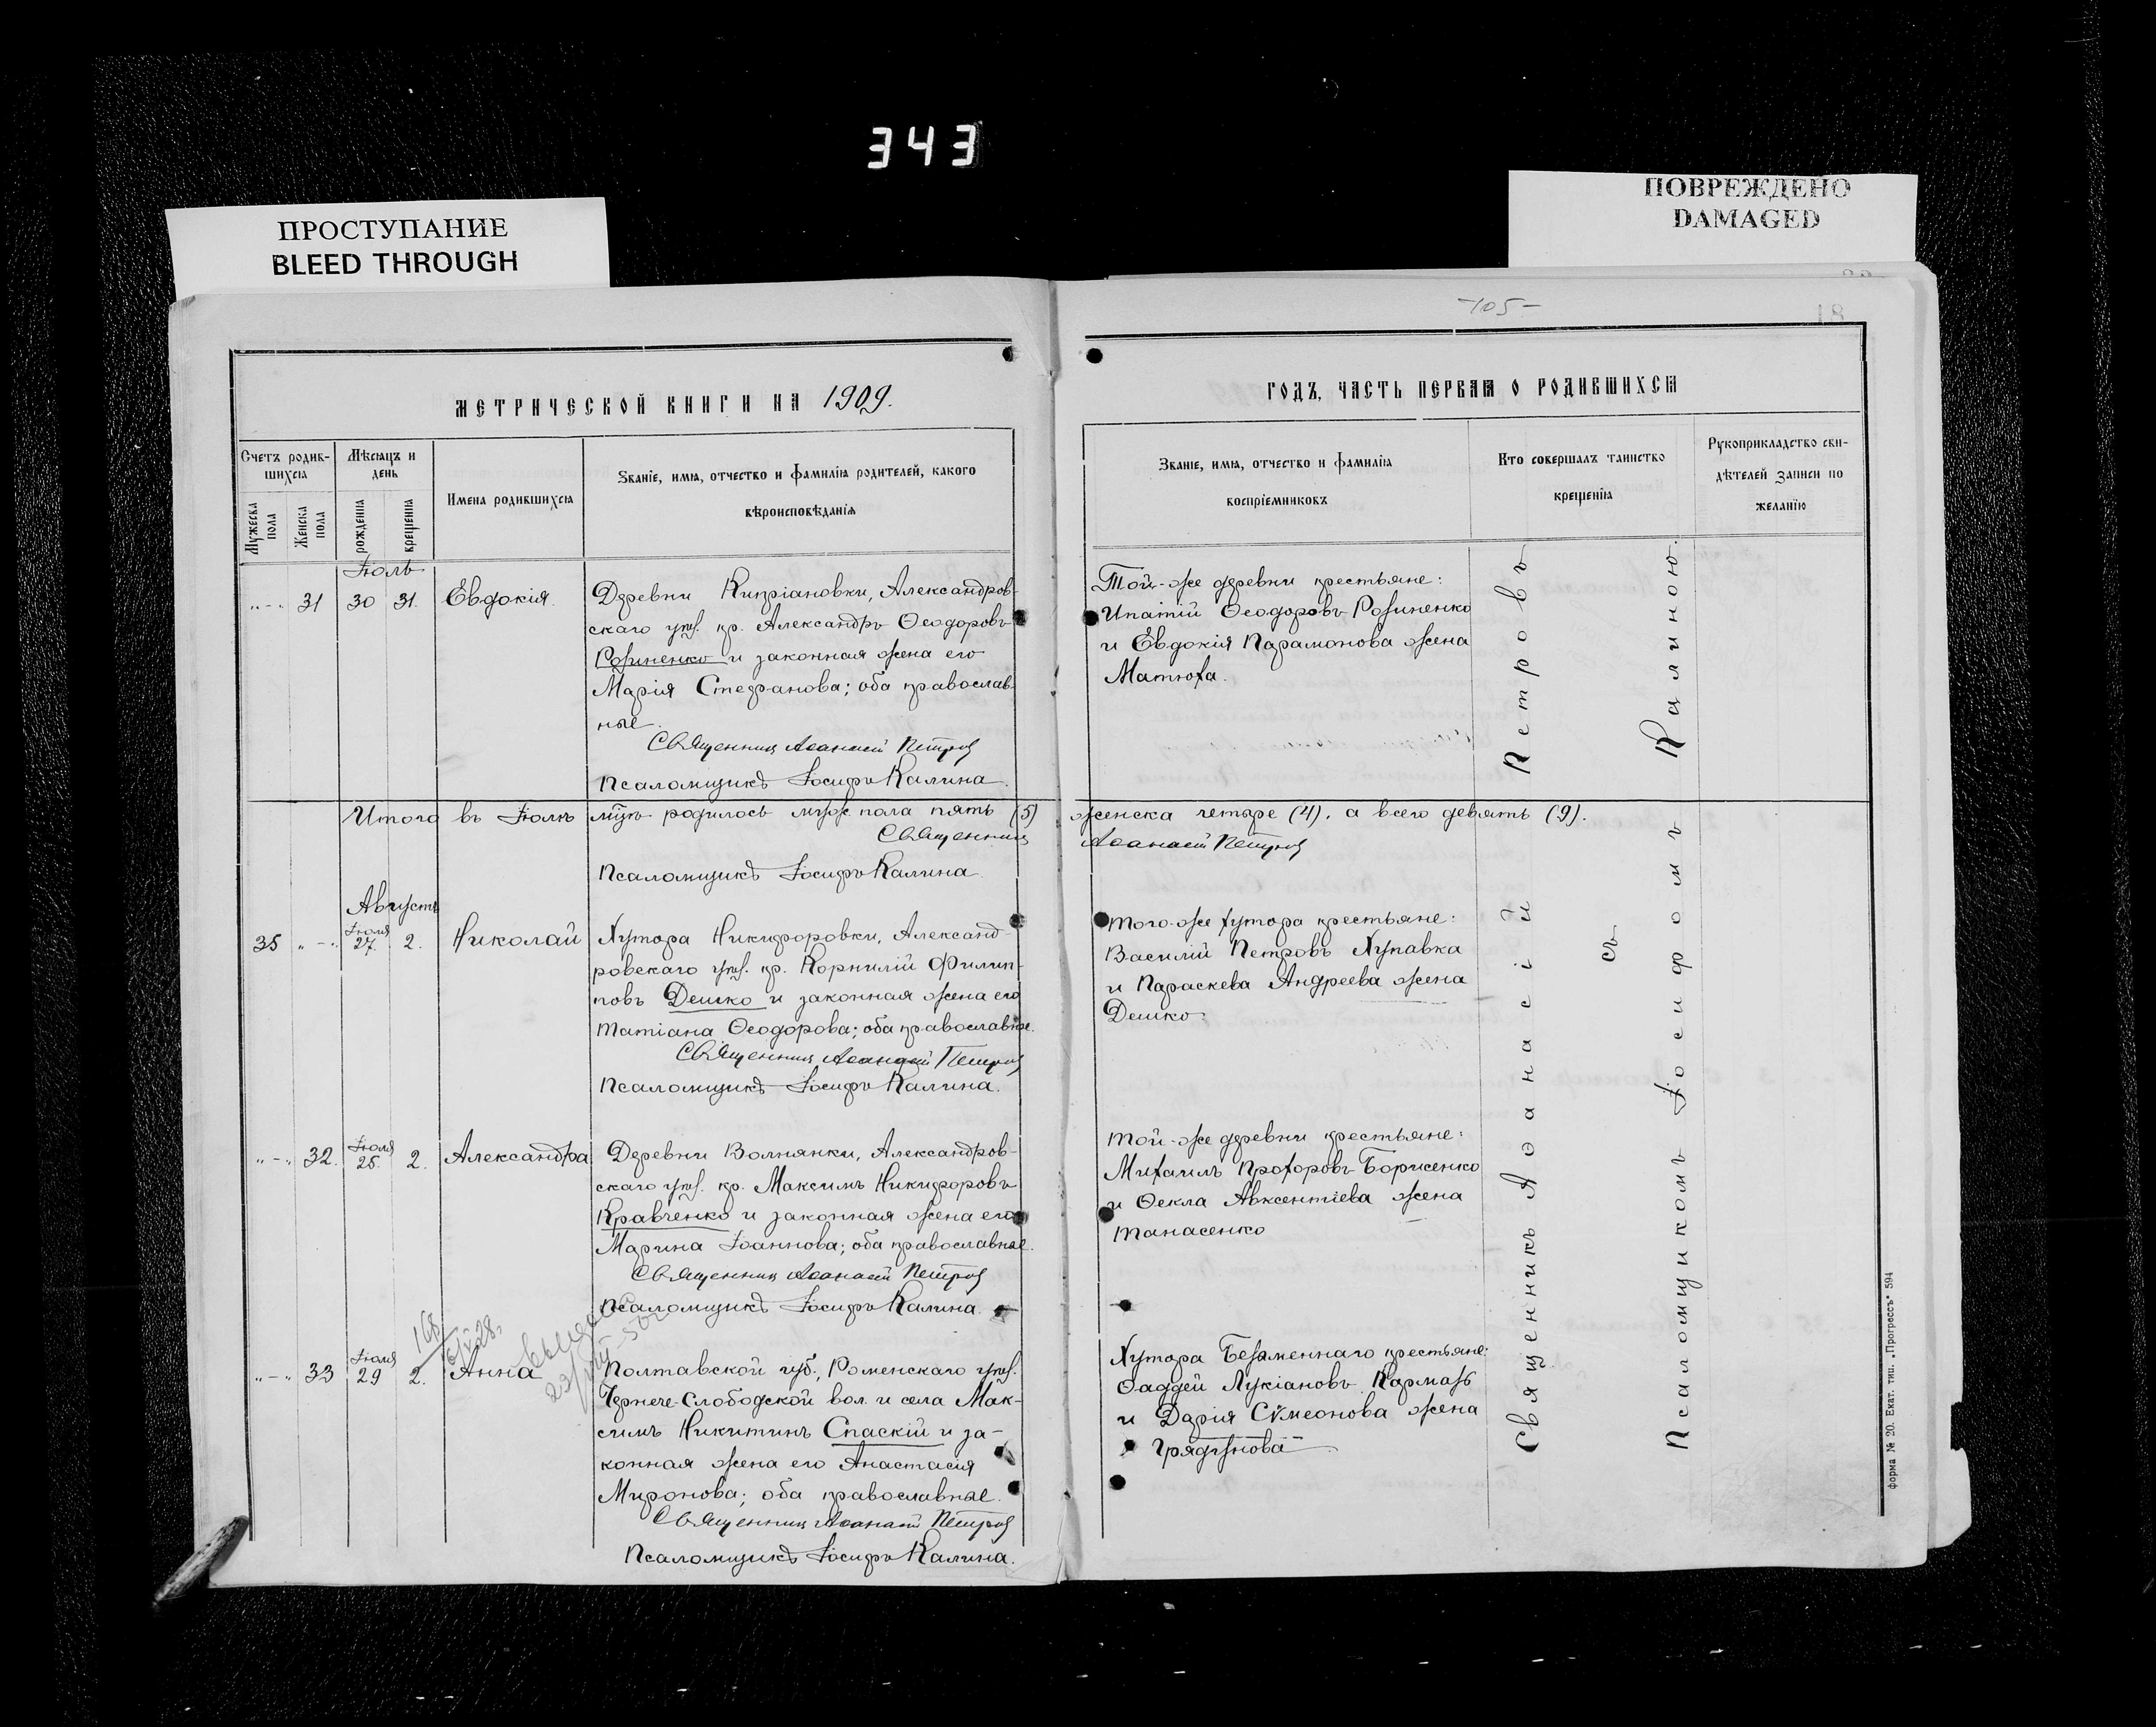 343
ПРОСТУПАНИЕ
BLEED THROUGH
ПОВРЕЖДЕНО
DAMAGED
-105-
МЕТРИЧЕСКОЙ КНИГИ НА 1909.
ГОДЪ, ЧАСТЬ ПЕРВАЯ О РОДИВШИХСЯ
Счетъ родив-
шихся
Мужеска
пола
Женска
пола
Мѣсяцъ и
день
рожденія
крещенія
Имена родившихся
Званіе, имя, отчество и фамилія родителей, какого
вѣроисповѣданія
Званіе, имя, отчество и фамилія
воспріемниковъ
Кто совершалъ таинство
крещенія
Рукоприкладство сви-
дѣтелей записи по
желанію
Іюль
„-„ 31 30 31. Евдокія.
Деревни Кипріановки, Александров-
скаго уѣз. кр. Александръ Ѳеодоровъ
Розиненко и законная жена его
Марія Стефанова; оба православ-
ные.
Священник Аѳанасій Петров
Псаломщикъ Іосифъ Калина.
Той-же деревни крестьяне:
Ипатій Ѳеодоровъ Розиненко
и Евдокія Парамонова жена
Матюха.
Итого въ Іюлѣ м-цѣ родилось муж. пола пять (5) женска четыре (4), а всего девять (9).
Священник Аѳанасій Петров
Псаломщикъ Іосифъ Калина.
Августъ
35 „-„ Іюля 27. 2. Николай
Хутора Никифоровки, Александ-
ровскаго уѣз. кр. Корнилій Филип-
повъ Дешко и законная жена его
Татіана Ѳеодорова; оба православные.
Священник Аѳанасій Петров
Псаломщикъ Іосифъ Калина.
Того-же хутора крестьяне:
Василій Петровъ Хупавка
и Параскева Андреева жена
Дешко.
„-„ 32. Іюля 25. 2. Александра
Деревни Волнянки, Александров-
скаго уѣз. кр. Максимъ Никифоровъ
Кравченко и законная жена его
Марина Іоаннова; оба православные.
Священник Аѳанасій Петров
Псаломщикъ Іосифъ Калина.
Той-же деревни крестьяне:
Михаилъ Прохоровъ Борисенко
и Ѳекла Авксентіева жена
Танасенко
168
„-„ 33 Іюля 29 2. Анна
Полтавской губ., Роменскаго уѣз.
Чернече-Слободской вол. и села Мак-
симъ Никитинъ Спаскій и за-
конная жена его Анастасія
Миронова; оба православные.
Священник Аѳанасій Петров
Псаломщикъ Іосифъ Калина.
Хутора Безменнаго крестьяне:
Ѳаддей Лукіановъ Кармазь
и Дарія Сѵмеонова жена
Грядунова.
Священникъ Аѳанасій Петровъ
съ
Псаломщикомъ Іосифомъ Калиною.
форма № 20. Екат. тип. „Прогрессъ“ 594